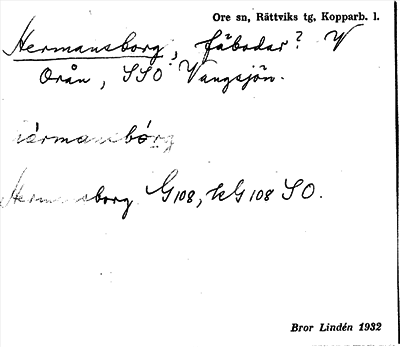 Ore sn, Rättviks tg, Kopparb. l.
Hermansborg, fäbodar? V
Orån, SSO Vangsjön.
härmansbórg
Hermansborg G108, kG108 SO.
Bror Lindén 1932